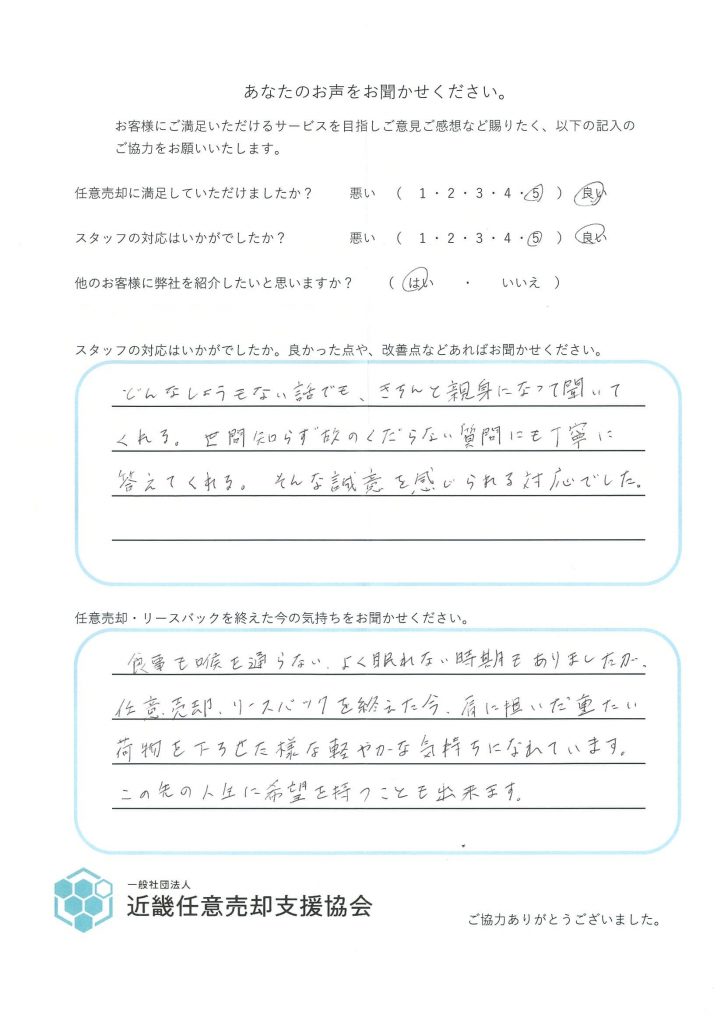 あなたのお声をお聞かせください。
お客様にご満足いただけるサービスを目指しご意見ご感想など賜りたく、以下の記入の
ご協力をお願いいたします。
任意売却に満足していただけましたか？ 悪い （ 1・2・3・4・5 ） 良い
スタッフの対応はいかがでしたか？ 悪い （ 1・2・3・4・5 ） 良い
他のお客様に弊社を紹介したいと思いますか？ （ はい ・ いいえ ）
スタッフの対応はいかがでしたか。良かった点や、改善点などあればお聞かせください。
どんなしょうもない話でも、きちんと親身になって聞いて
くれる。世間知らず故のくだらない質問にも丁寧に
答えてくれる。そんな誠意を感じられる対応でした。
任意売却・リースバックを終えた今の気持ちをお聞かせください。
食事も喉を通らない、よく眠れない時期もありましたが、
任意売却、リースバックを終えた今、肩に担いだ重たい
荷物を下ろせた様な軽やかな気持ちになれています。
この先の人生に希望を持つことも出来ます。
一般社団法人
近畿任意売却支援協会
ご協力ありがとうございました。